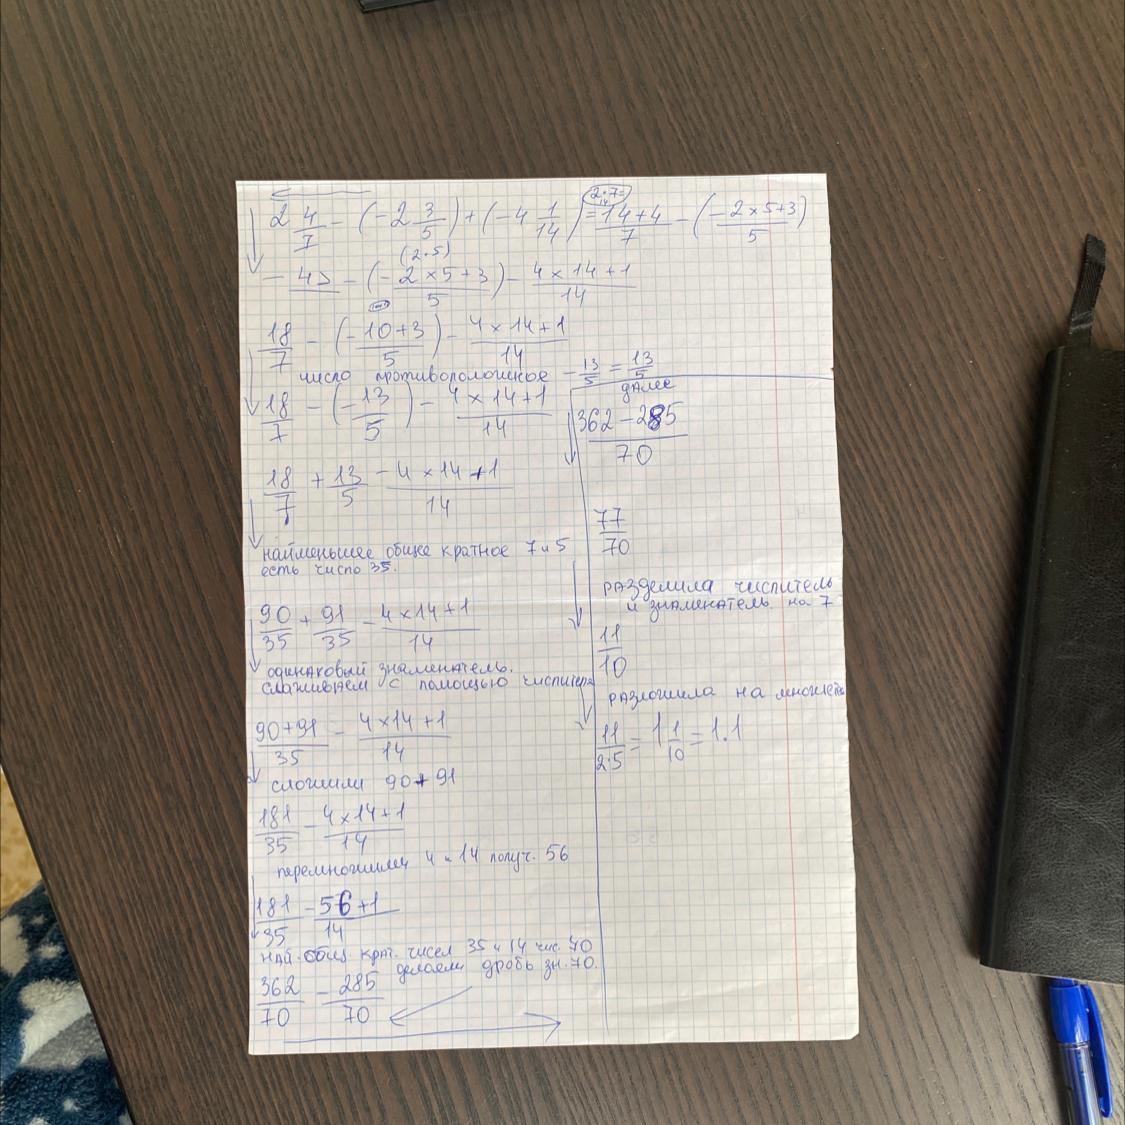 2·7=
14
2 4/7 - (-2 3/5) + (-4 1/14) = 14+4/7 - (-2×5+3/5)
(2·5)
- (-2×5+3/5) - 4×14+1/14
18/7 - (-10+3/5) - 4×14+1/14
число противоположное -13/5 = 13/5
18/7 - (-13/5) - 4×14+1/14
18/7 + 13/5 - 4×14+1/14
наименьшее общее кратное 7 и 5
есть число 35.
90/35 + 91/35 - 4×14+1/14
одинаковый знаменатель.
слаживаем с помощью числителя
90+91/35 - 4×14+1/14
сложили 90+91
181/35 - 4×14+1/14
перемножили 4 и 14 получ. 56
181/35 - 56+1/14
най. общ крат. чисел 35 и 14 чис. 70
делаем дробь зн. 70.
362/70 - 285/70
далее
362-285/70
77/70
разделила числитель
и знаменатель на 7
11/10
разложила на множит
11/2·5 = 1 1/10 = 1.1